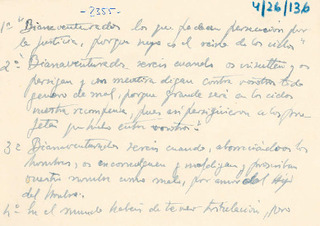 -2355-
4/26/136
1º "Bienaventurados los que padecen persecución por
la justicia, porque suyo es el reino de los cielos"
2º "Bienaventurados sereis cuando os insulten, os
persigan y con mentira digan contra vosotros todo
genero de mal, porque grande será en los cielos
vuestra recompensa, pues así persiguieron a los profe
tas
3º Bienaventurados sereis cuando, aborreciéndoos los
hombres, os excomulguen y maldigan, y proscriban
vuestro nombre como malo, por amor del Hijo
del Hombre.
4º En el mundo habeis de tener tribulación, pero